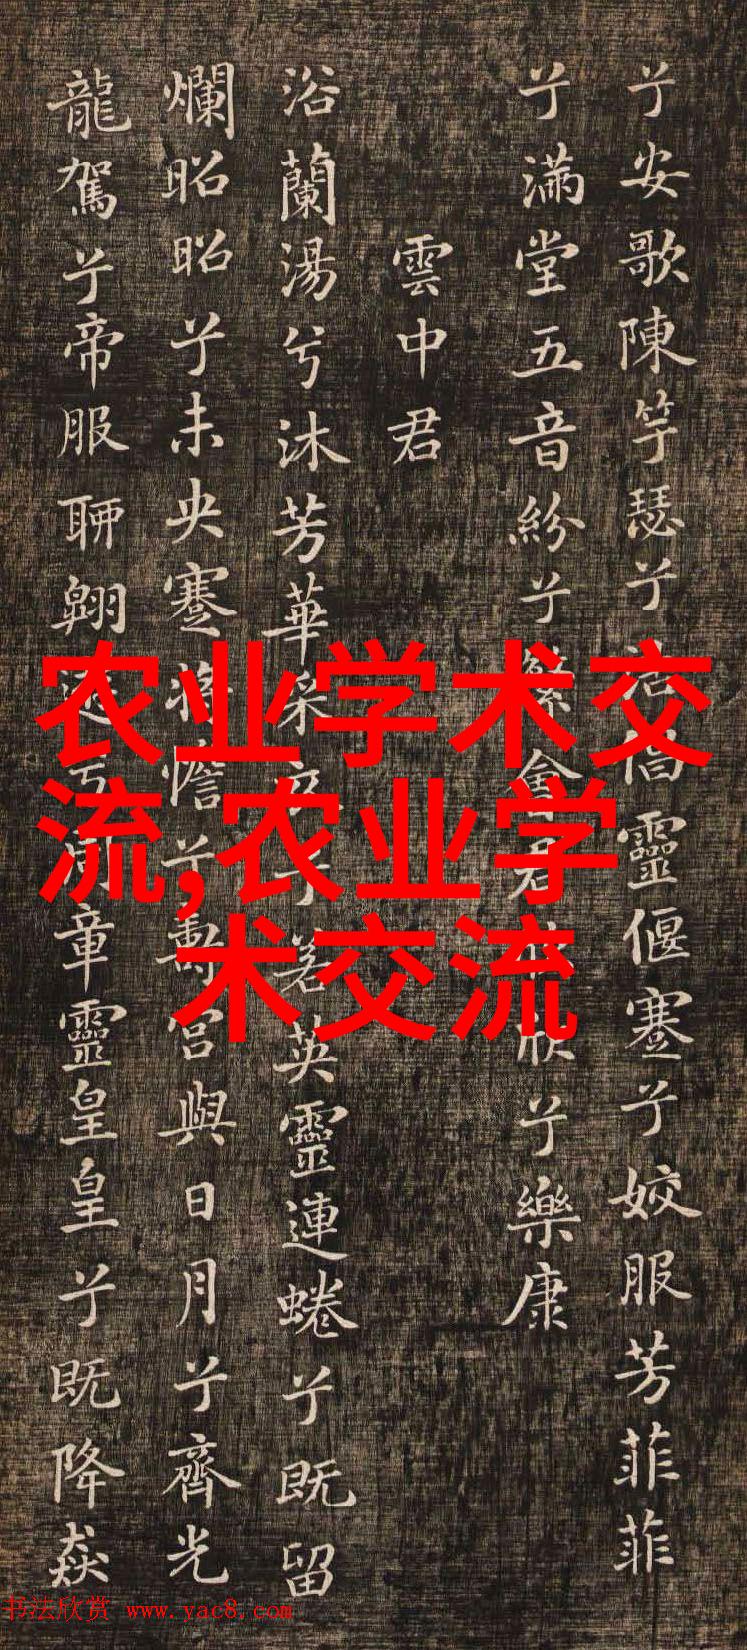 兮安歌陳竽瑟兮浩倡靈偃蹇兮姣服芳菲菲
兮滿堂五音紛兮繁會君欣欣兮樂康
雲中君
浴蘭湯兮沐芳華采衣兮若英靈連蜷兮既留
爛昭昭兮未央蹇將憺兮壽宮與日月兮齊光
龍駕兮帝服聊翱遊兮周章靈皇皇兮既降猋
农业学术交
流,农业学
术交流
书法欣赏 www.yac8.com